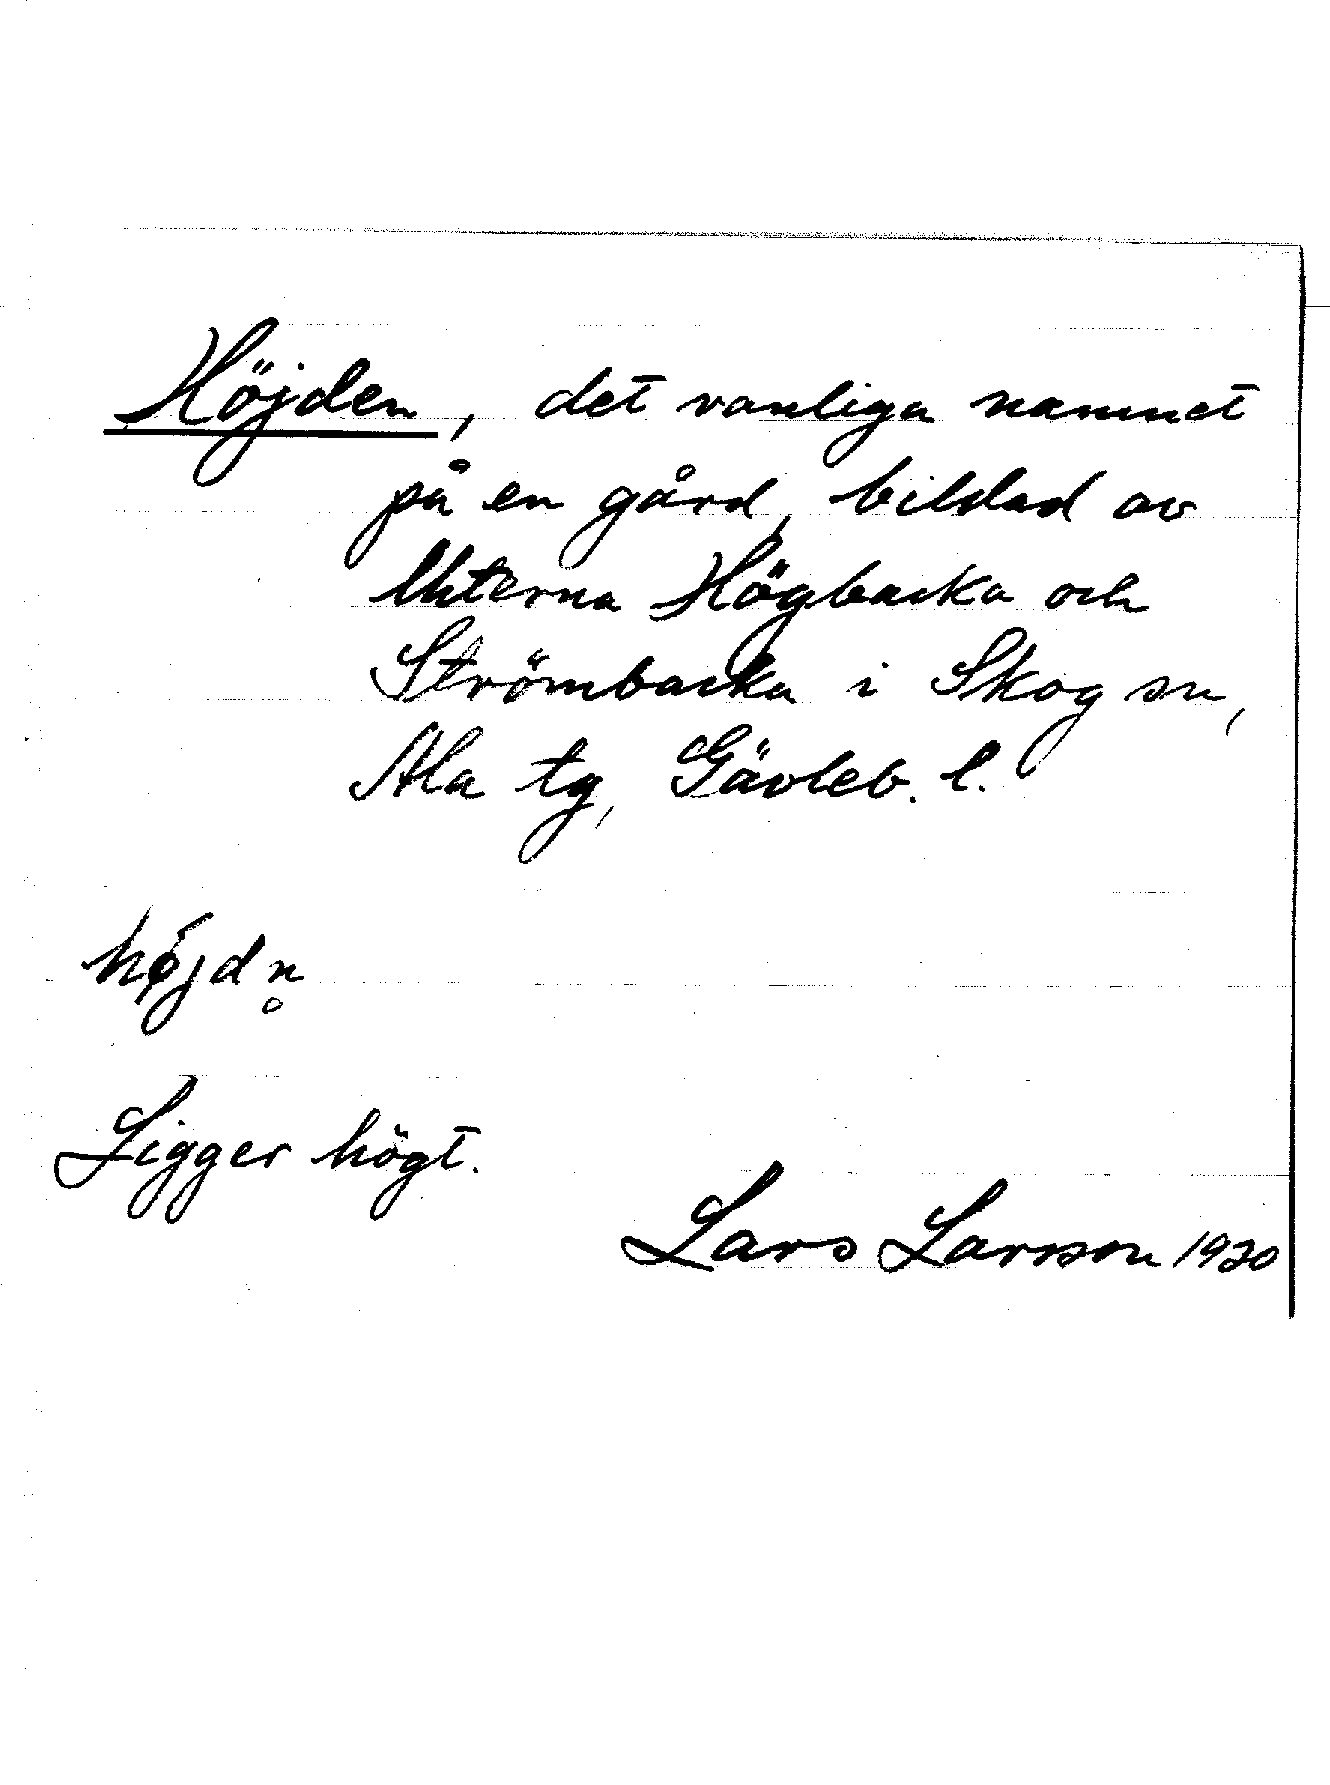 Höjden, det vanliga namnet
på en gård, bildad av
lhterna Högbacka och
Strömbacka i Skog sn,
Ala tg, Gävleb. l.
hø̀jdn̥
Ligger högt.
Lars Larsson 1920